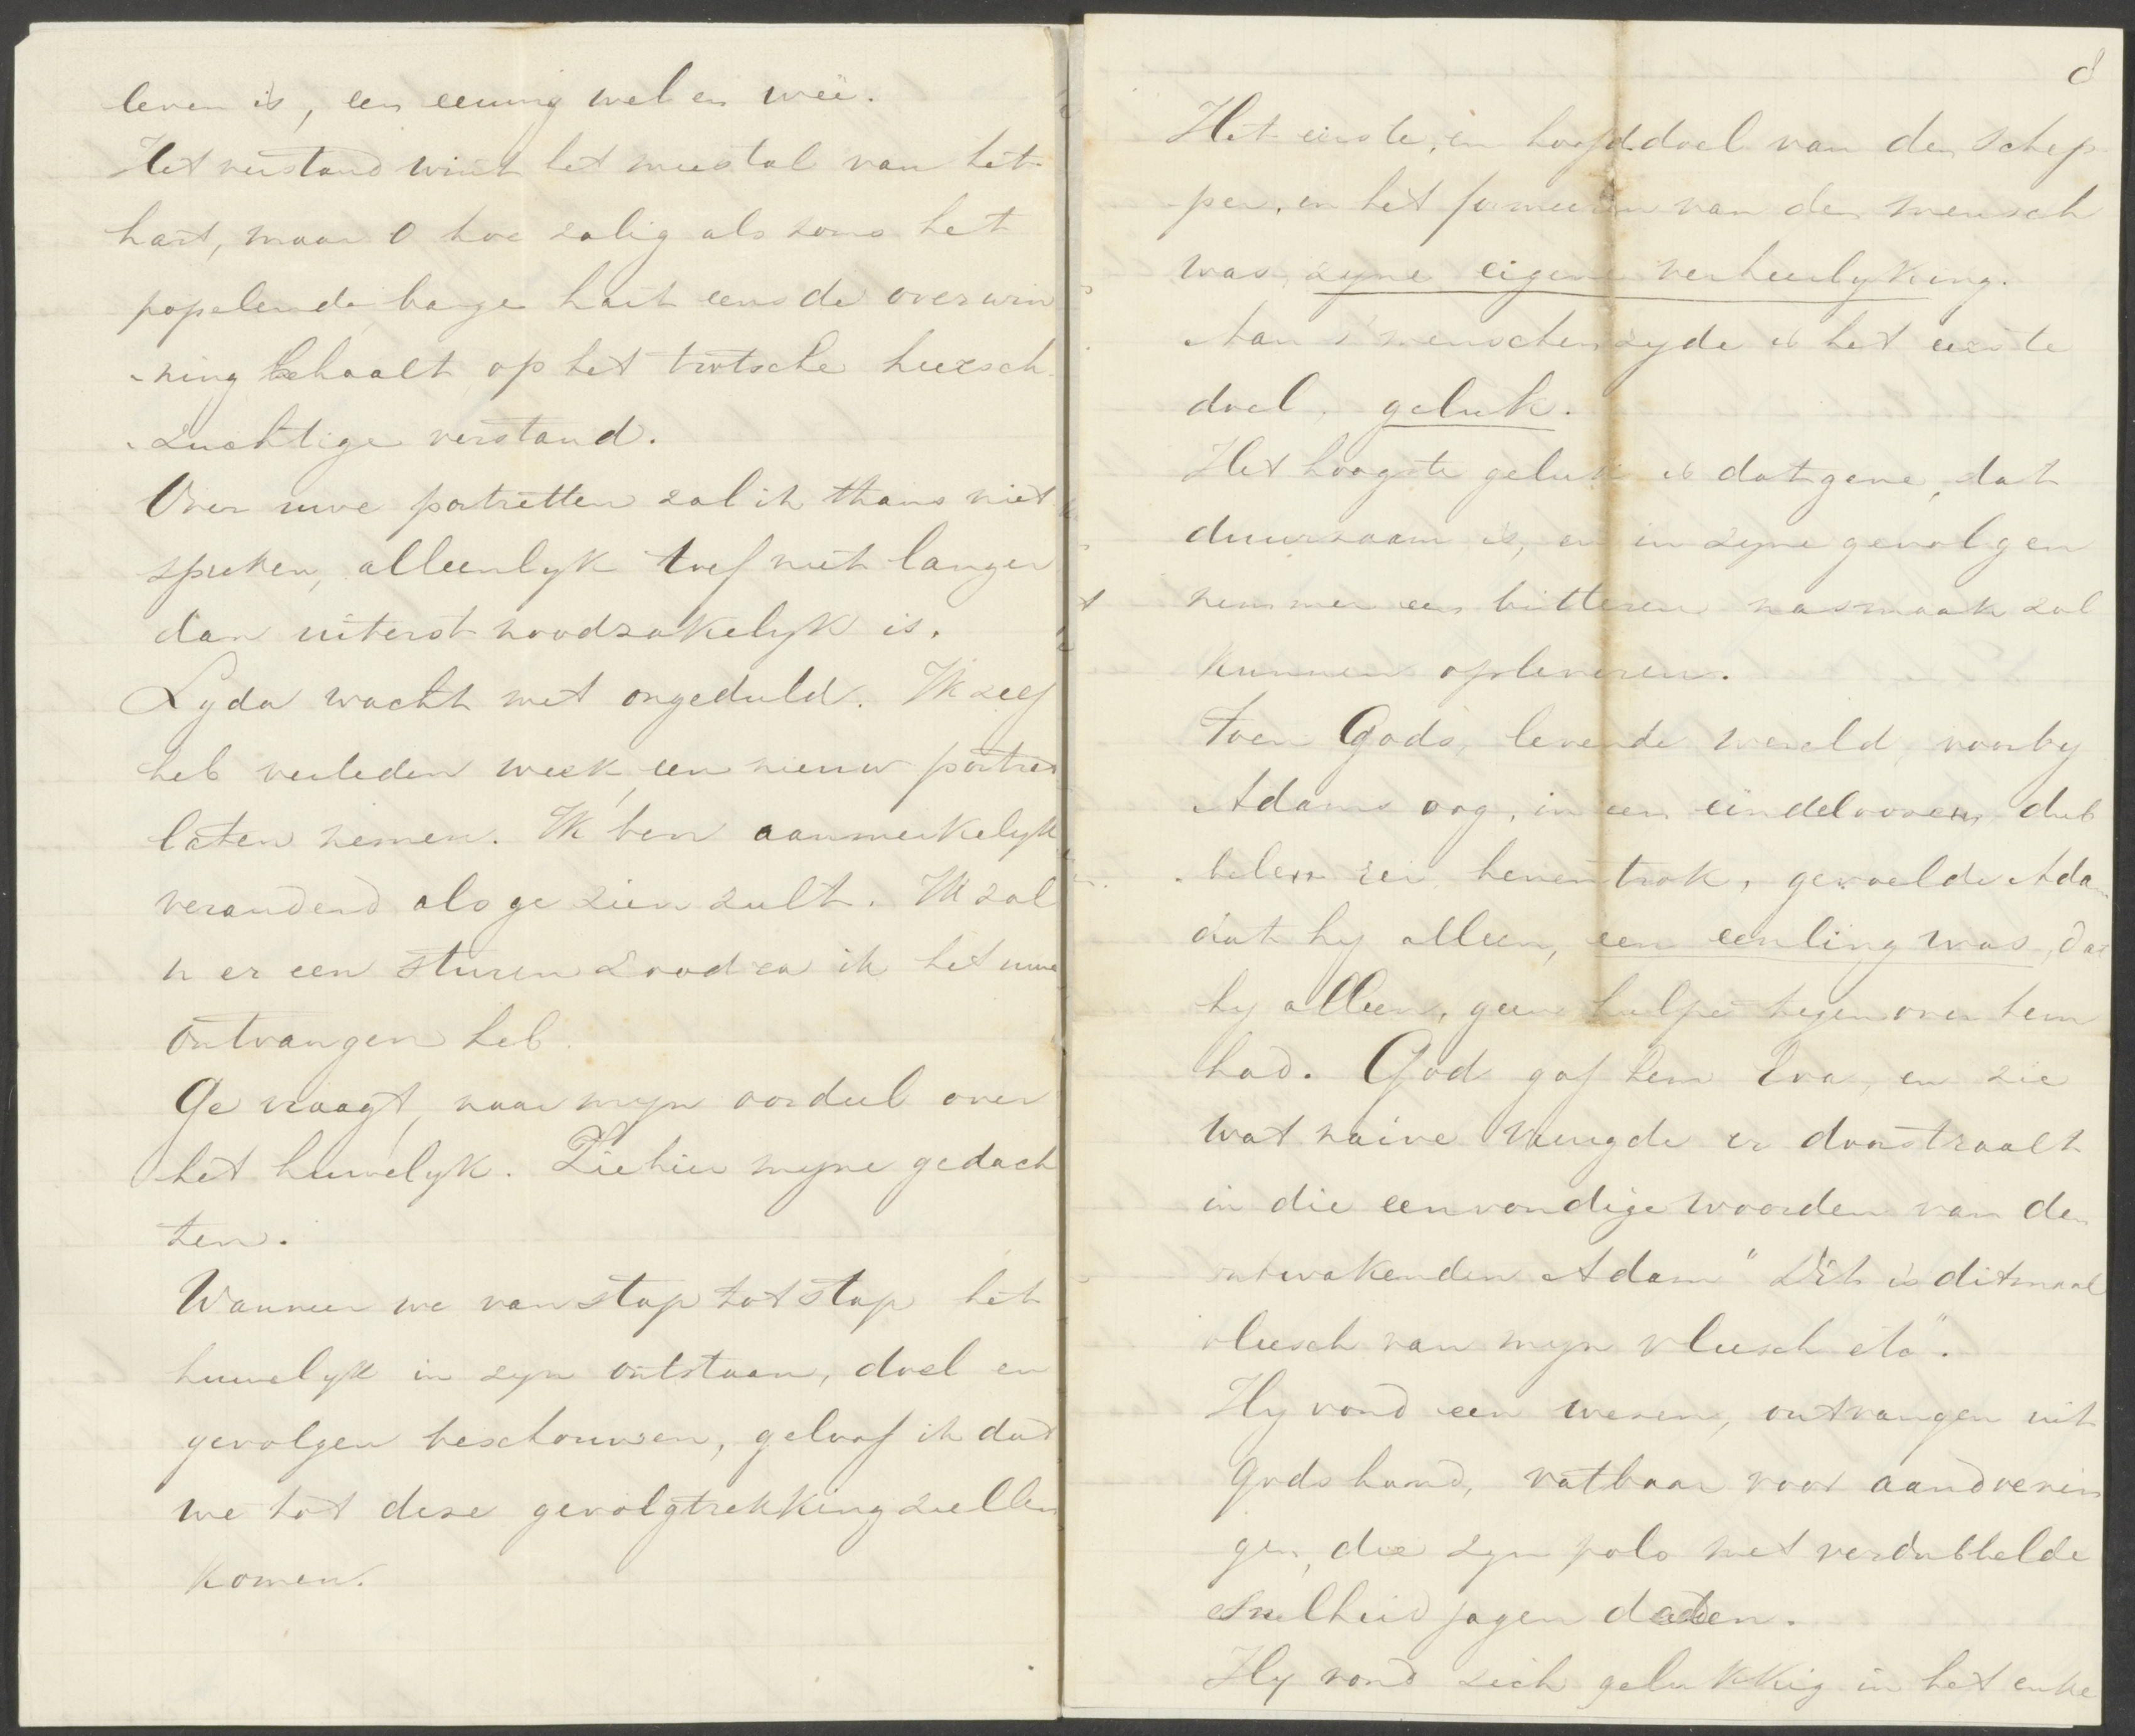 leven is, een eeuwig wel en weë.
Het verstand wint het meestal van het
hart, maar O hoe zalig als soms het
popelende bange hart eens de overwin
-ning behaalt op het trotsche heersch-
-zuchtige verstand.
Over uwe portretten zal ik thans niet
spreken, alleenlyk toef niet langer
dan uiterst noodzakelyk is.
Lyda wacht met ongeduld. Ik zelf
heb verleden week, een nieuw portret
laten nemen. Ik ben aanmerkelyk
veranderd als ge zien zult. Ik zal
u er een sturen zoodra ik het uwe
ontvangen heb.
Ge vraagt, naar myn oordeel over
het huwelyk. Ziehier myne gedach
ten.
Wanneer we van stap tot stap het
huwelyk in zyn ontstaan, doel en
gevolgen beschouwen, geloof ik dat
we tot deze gevolgtrekking zullen
komen.
8
Het eerste, en hoofddoel van den Schep-
per, in het formeeren van den mensch
was, zyne eigene verheerlyking.
Aan s'menschen zyde is het eerste
doel, geluk.
Het hoogste geluk is datgene, dat
duurzaam is, en in zyne gevolgen
nimmer een bitteren nasmaak zal
kunnen opleveren.
Toen Gods, levende wereld, voorby
Adams oog, in een eindeloozen dub
-belen rei henen trok, gevoelde Adam
dat hy alleen, een eenling was, dat
hy alleen, geen hulpe tegenover hem
had. God gaf hem Eva, en zie
wat naive vreugde er doorstraalt
in die eenvoudige woorden van den
ontwakenden Adam "Dit is ditmaal
vleesch van myn vleesch etc".
Hy vond een wezen, ontvangen uit
Gods hand, vatbaar voor aandoenin
gen, die zyn pols met verdubbelde
snelheid jagen deden.
Hy vond zich gelukkig in het enke